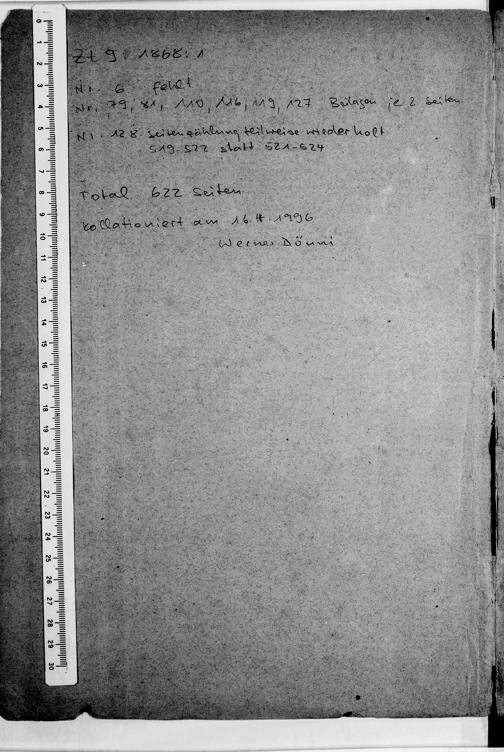 Zt 9 : 1868 : 1
Nr. 6 fehlt
Nr. 79, 81, 110, 116, 119, 127 Beilagen je 2 Seiten
Nr. 128 Seitenzählung teilweise wiederholt
519-522 statt 521-524
Total 622 Seiten
Kollationiert am 16.4.1996
Werner Dönni
0 1 2 3 4 5 6 7 8 9 10 11 12 13 14 15 16 17 18 19 20 21 22 23 24 25 26 27 28 29 30